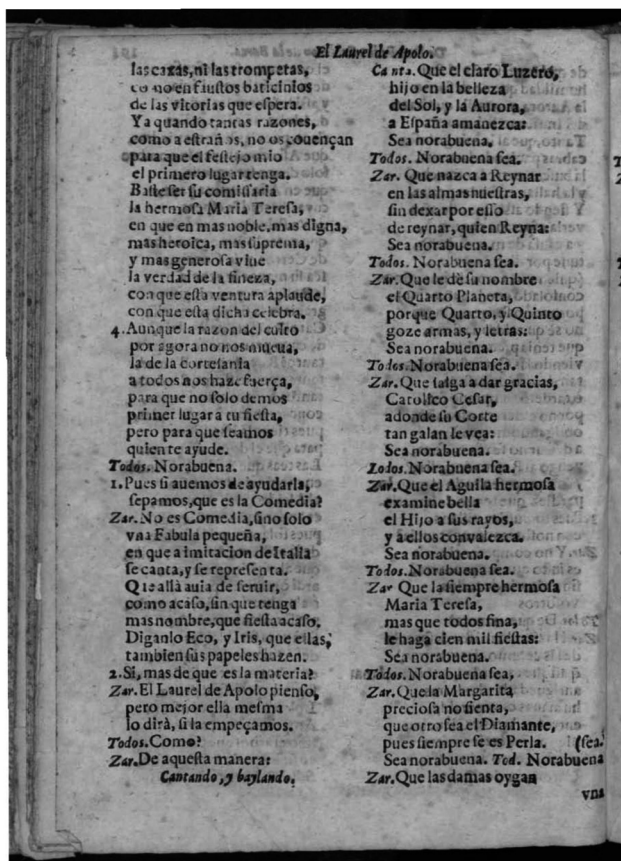 El Laurel de Apolo.
las caxas, ni las trompetas,
co no en faustos baticinios
de las vitorias que espera.
Ya quando tantas razones,
como a estraños, no os couençan
para que el festejo mio
el primero lugar tenga.
Baste ser su comissaria
la hermosa Maria Teresa,
en que en mas noble, mas digna,
mas heroica, mas suprema,
y mas generosa viue
la verdad de la fineza,
con que esta ventura aplaude,
con que esta dicha celebra.
4. Aunque la razon del culto
por agora no nos mueua,
la de la cortesania
a todos nos haze fuerça,
para que no solo demos
primer lugar a tu fiesta,
pero para que seamos
quien te ayude.
Todos. Norabuena.
1. Pues si auemos de ayudarla,
sepamos, que es la Comedia?
Zar. No es Comedia, sino solo
vna Fabula pequeña,
en que a imitacion de Italia
se canta, y se representa.
Que allà auia de seruir,
como acaso, sin que tenga
mas nombre, que fiesta acaso.
Diganlo Eco, y Iris, que ellas,
tambien sus papeles hazen.
2. Si, mas de que es la materia?
Zar. El Laurel de Apolo pienso,
pero mejor ella mesma
lo dirà, si la empeçamos.
Todos. Como?
Zar. De aquesta manera:
Cantando, y baylando.
Canta. Que el claro Luzero,
hijo en la belleza
del Sol, y la Aurora,
a España amanezca:
Sea norabuena.
Todos. Norabuena sea.
Zar. Que nazca a Reynar
en las almas nuestras,
sin dexar por esso
de reynar, quien Reyna:
Sea norabuena.
Todos. Norabuena sea.
Zar. Que le dè su nombre
el Quarto Planeta,
porque Quarto, y Quinto
goze armas, y letras:
Sea norabuena.
Todos. Norabuena sea.
Zar. Que salga a dar gracias,
Catolico Cesar,
adonde su Corte
tan galan le vea:
Sea norabuena.
Todos. Norabuena sea.
Zar. Que el Aguila hermosa
examine bella
el Hijo a sus rayos,
y a ellos convalezca.
Sea norabuena.
Todos. Norabuena sea.
Zar Que la siempre hermosa
Maria Teresa,
mas que todos fina,
le haga cien mil fiestas:
Sea norabuena.
Todos. Norabuena sea,
Zar. Que la Margarita
preciosa no sienta,
que otro sea el Diamante,
pues siempre se es Perla. (sea.
Sea norabuena. Tod. Norabuena
Zar. Que las damas oygan
vna